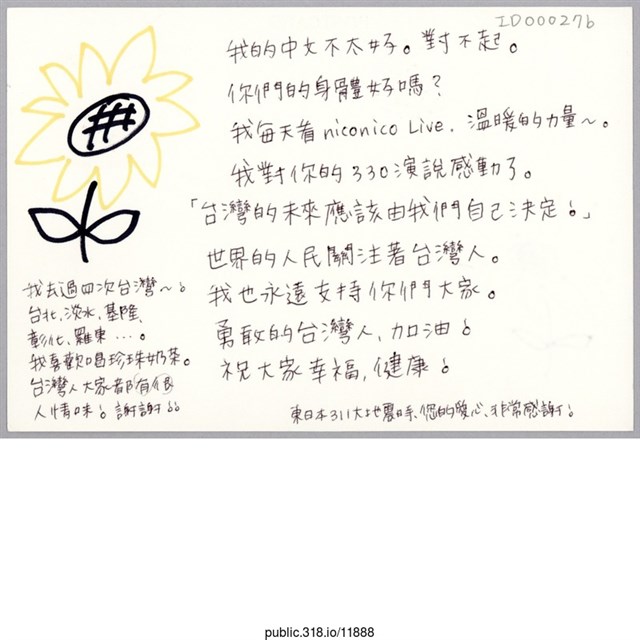 ID000276
我的中文不太好。對不起。
你們的身體好嗎？
我每天看niconico Live. 溫暖的力量～。
我對你的330演說感動了。
「台灣的未來應該由我們自己決定！」
世界的人民關注著台灣人。
我也永遠支持你們大家。
勇敢的台灣人,加油！
祝大家幸福,健康！
我去過四次台灣～！
台北,淡水,基隆、
彰化、羅東…。
我喜歡喝珍珠奶茶。
台灣人大家都有很
人情味！謝謝！！
東日本311大地震時、您的愛心、非常感謝！
public.318.io/11888